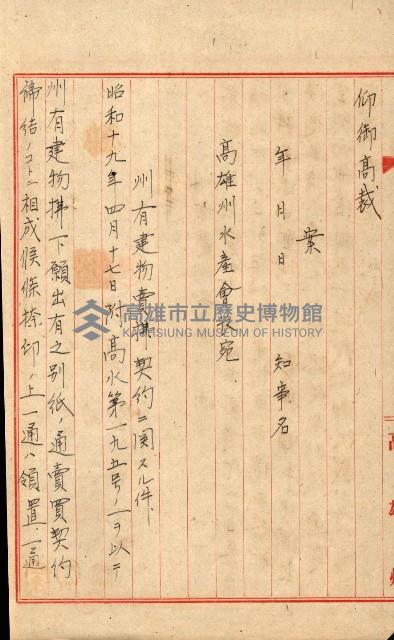 仰御高裁
案
年月日
知事名
高雄州水産會長宛
州有建物賣拂契約ニ関スル件
昭和十九年四月十七日附高水第一九五号ノ一ヲ以テ
州有建物拂下願出有之別紙ノ通賣買契約
締結ノコトニ相成候條捺印ノ上一通ハ領置一通
高雄州
高雄市立歷史博物館
KAOHSIUNG MUSEUM OF HISTORY